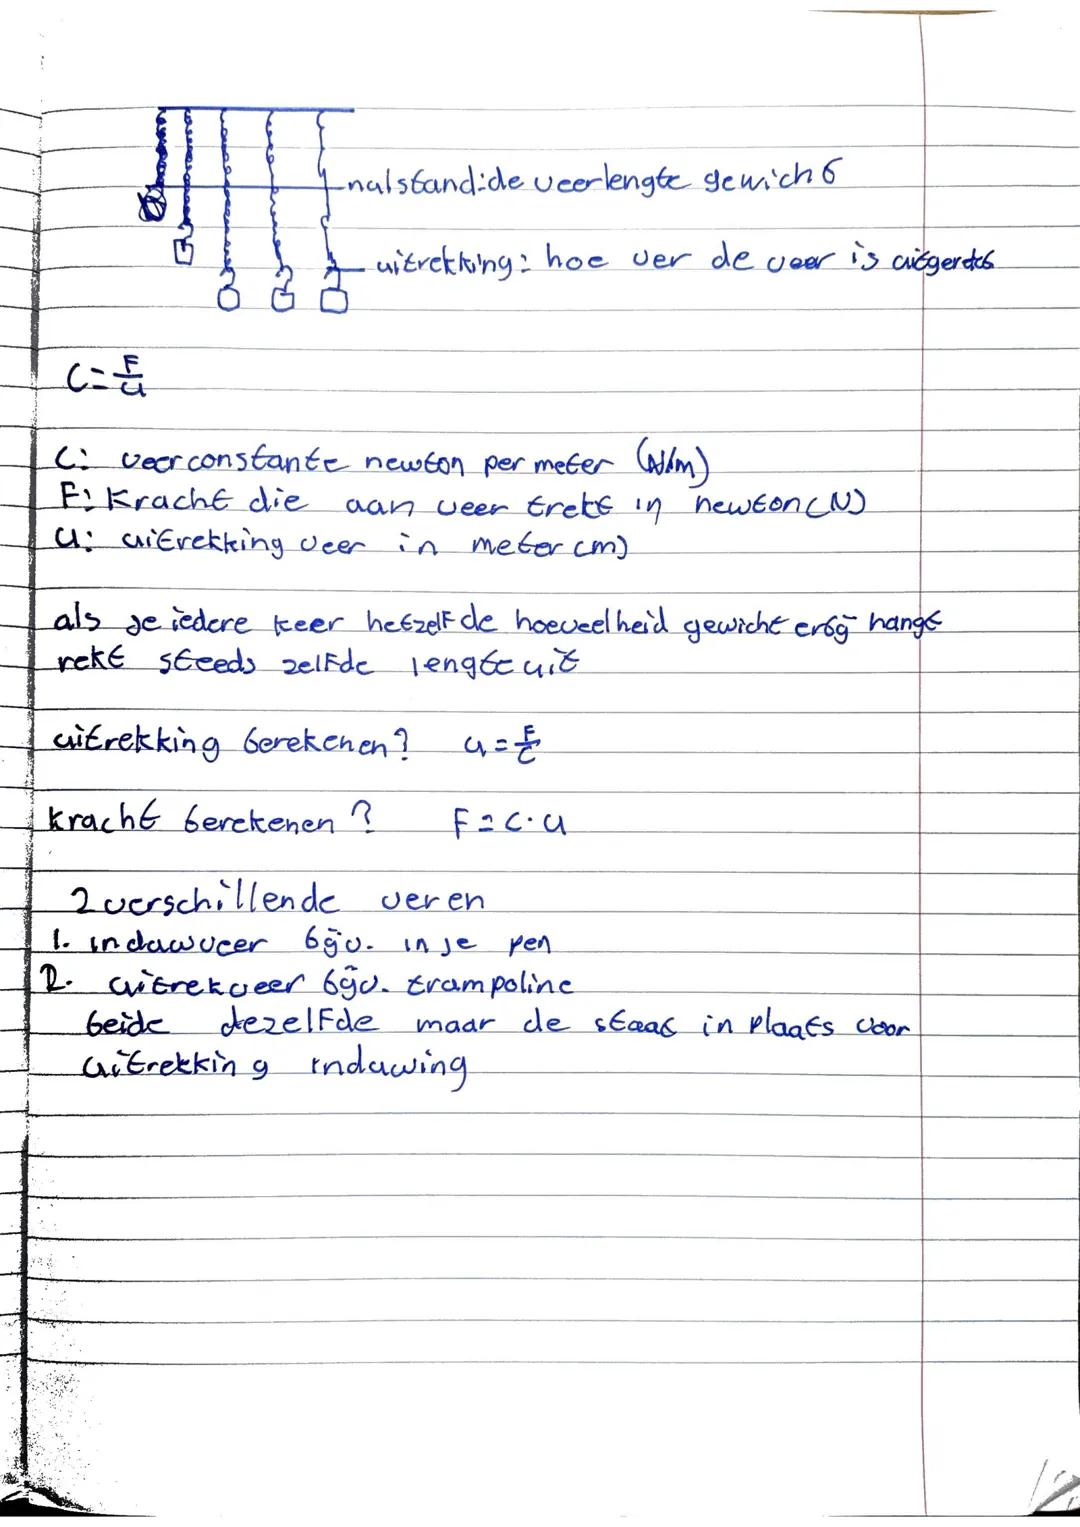 nulstand: de veerlengte gewicht
uitrekking: hoe ver de veer is uitgerekt
C = F/u
C: veerconstante newton per meter (N/m)
F: Kracht die aan veer trekt in newton (N)
u: uitrekking veer in meter (m)
als je iedere keer hetzelfde hoeveelheid gewicht erbij hangt
rekt steeds zelfde lengte uit
uitrekking berekenen? u = F/C
kracht berekenen? F = C · u
2 verschillende veren
1. induwveer bijv. in je pen
2. uitrekveer bijv. trampoline
beide dezelfde maar de staat in plaats voor
uitrekking induwing